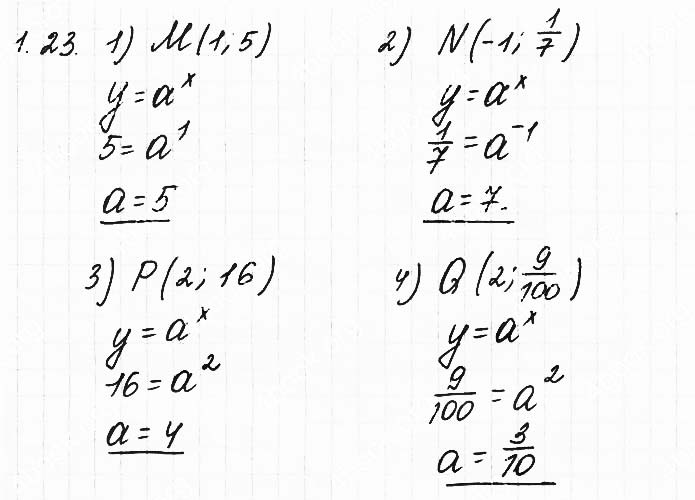 1.23. 1) M(1; 5)
y = a^x
5 = a^1
a = 5
2) N(-1; 1/7)
y = a^x
1/7 = a^-1
a = 7.
3) P(2; 16)
y = a^x
16 = a^2
a = 4
4) Q(2; 9/100)
y = a^x
9/100 = a^2
a = 3/10